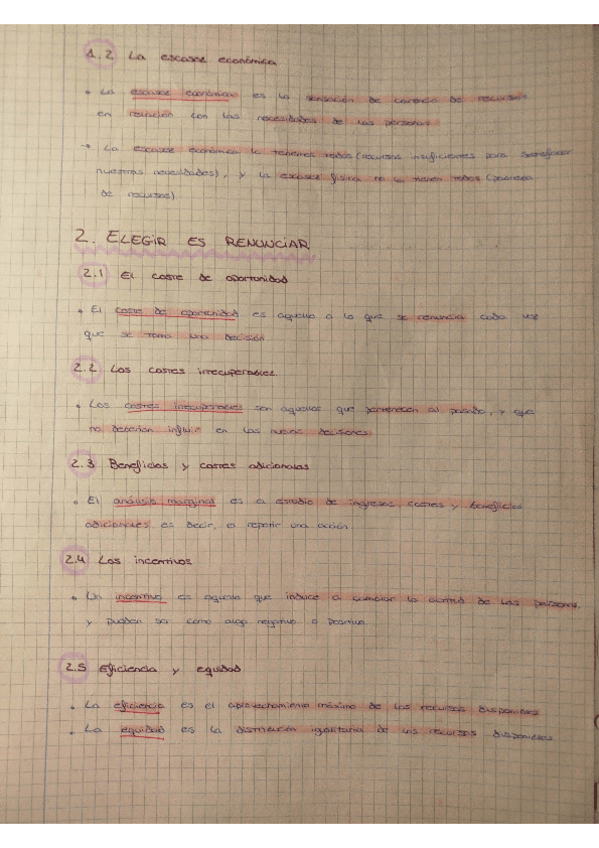 1.2 La escasez económica
• La escasez económica es la sensación de carencia de recursos
en relación con las necesidades de las personas.
→ La escasez económica la tenemos todos (recursos insuficientes para satisfacer
nuestras necesidades), y la escasez física no la tienen todos (pobreza
de recursos)
2. ELEGIR ES RENUNCIAR
2.1 El coste de oportunidad
• El coste de oportunidad es aquello a lo que se renuncia cada vez
que se toma una decisión
2.2 Los costes irrecuperables.
• Los costes irrecuperables son aquellos que pertenecen al pasado, y que
no deberían influir en las nuevas decisiones.
2.3 Beneficios y costes adicionales
• El análisis marginal es el estudio de ingresos, costes y beneficios
adicionales, es decir, al repetir una acción.
2.4 Los incentivos
• Un incentivo es aquello que induce a cambiar la actitud de las personas,
y pueden ser como algo negativo o positivo.
2.5 Eficiencia y equidad
• La eficiencia es el aprovechamiento máximo de los recursos disponibles
• La equidad es la distribución igualitaria de los recursos disponibles